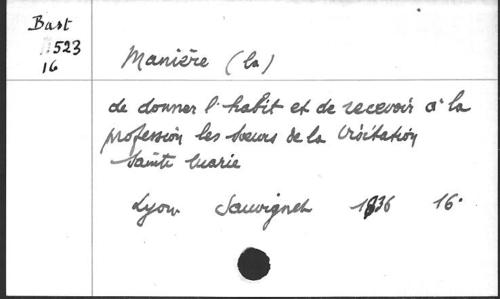 Bast
523
16
Manière (la)
de donner l'habit et de recevoir à la
profession les sœurs de la Visitation
Sainte Marie
Lyon Sauvignet 1836 16°